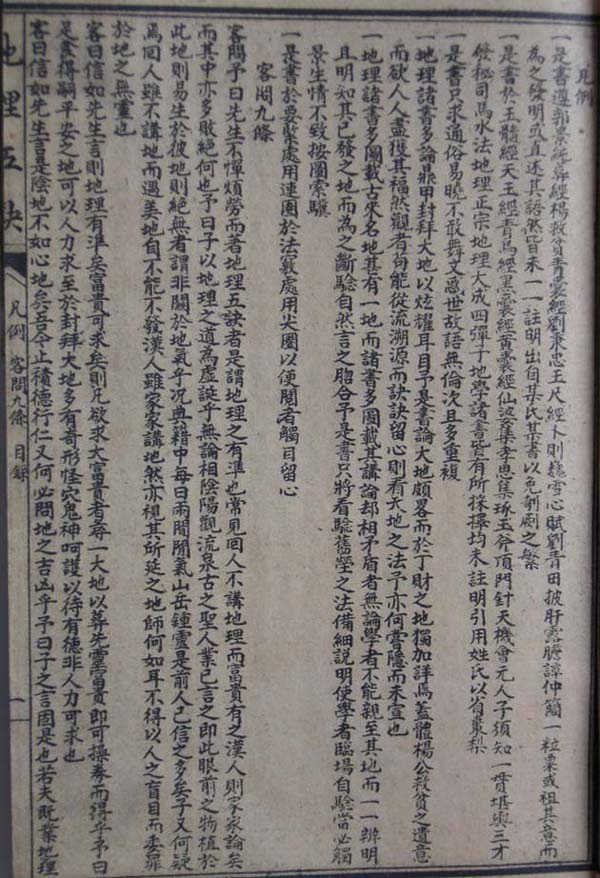 凡例
一是書遵郭景純葬經楊救貧青囊經劉秉忠玉尺經卜則巍雪心賦劉青田披肝露膽譚仲簡一粒粟或祖其意而
為之發明或直述其語然皆未一一註明出自某氏某書以免剞劂之繁
一是書於玉髓經天玉經青烏經黑囊經黃囊經仙婆集孝思集琢玉斧頂門針天機會元人子須知一貫堪輿三才
發秘司馬水法地理正宗地理大成四彈子地學諸書皆有所採擇均未註明引用姓氏以省棗梨
一是書只求通俗易曉不敢舞文惑世故語無倫次且多重複
一地理諸書多論鼎甲封拜大地以炫耀耳目予是書論大地頗畧而於丁財之地獨加詳焉蓋體楊公救貧之遺意
而欲人人盡獲其福然觀者苟能從流溯源而訣訣留心則看大地之法予亦何嘗隱而未宣也
一地理諸書多圖載古來名地甚有一地而諸書多圖載其講論却相矛盾者無論學者不能親至其地而一一辨明
且明知其已發之地而為之斷驗自然言之脗合予是書只將看驗舊塋之法備細說明使學者臨塲自驗當必觸
景生情不致按圖索驥
一是書於要緊處用連圈於法竅處用尖圈以便閱者觸目留心
客問九條
客問予曰先生不憚煩勞而著地理五訣者是謂地理之有準也常見回人不講地理而富貴有之漢人則家家論矣
而其中亦多敗絕何也予曰子以地理之道為虛誕乎無論相陰陽觀流泉古之聖人業已言之即此眼前之物植於
此地則易生於彼地則絕無者謂非關於地氣乎况典籍中每曰兩間閒氣山岳鍾靈是前人已信之多矣子又何疑
焉回人雖不講地而遇美地自不能不發漢人雖家家講地然亦視其所延之地師何如耳不得以人之盲目而委罪
於地之無靈也
客曰信如先生言則地理有準矣富貴可求矣則凡欲求大富貴者尋一大地以葬先靈富貴即可操券而得乎予曰
足食得嗣平安之地可以人力求至於封拜大地多有奇形怪穴鬼神呵護以待有德非人力可求也
客曰信如先生言是陰地不如心地矣吾今止積德行仁又何必問地之吉凶乎予曰子之言固是也若夫既業地理
地理五訣
凡例 客問九條 目録
一